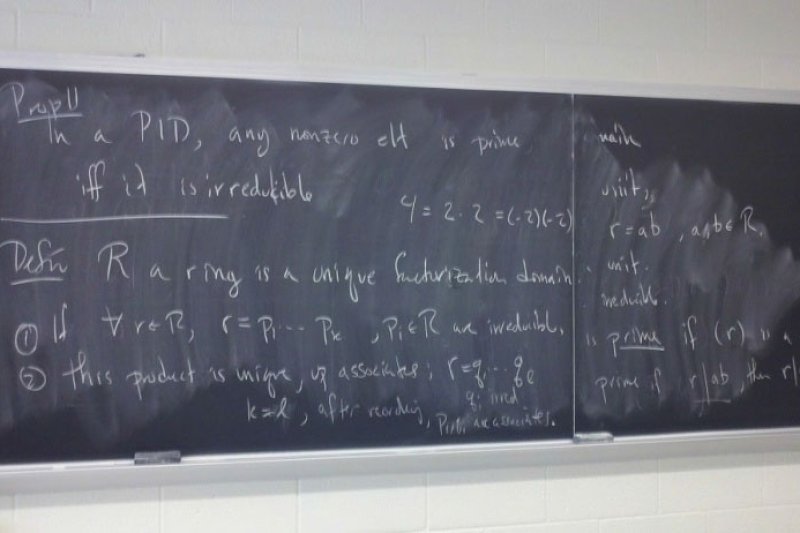 Prop 11
In a PID, any nonzero elt is prime
iff it is irreducible
4 = 2 · 2 = (-2)(-2)
Defn R a ring is a unique factorization domain
① If ∀ r ∈ R, r = p₁ ... pₖ , pᵢ ∈ R are irreducible,
② this product is unique, up associates; r = q₁ ... qₗ
qᵢ irred
k = l, after reordering, pᵢ, qᵢ are associates.
unit,
r = ab , a, b ∈ R.
unit.
irreducible.
is prime if (r) is a
prime if r | ab, then r |